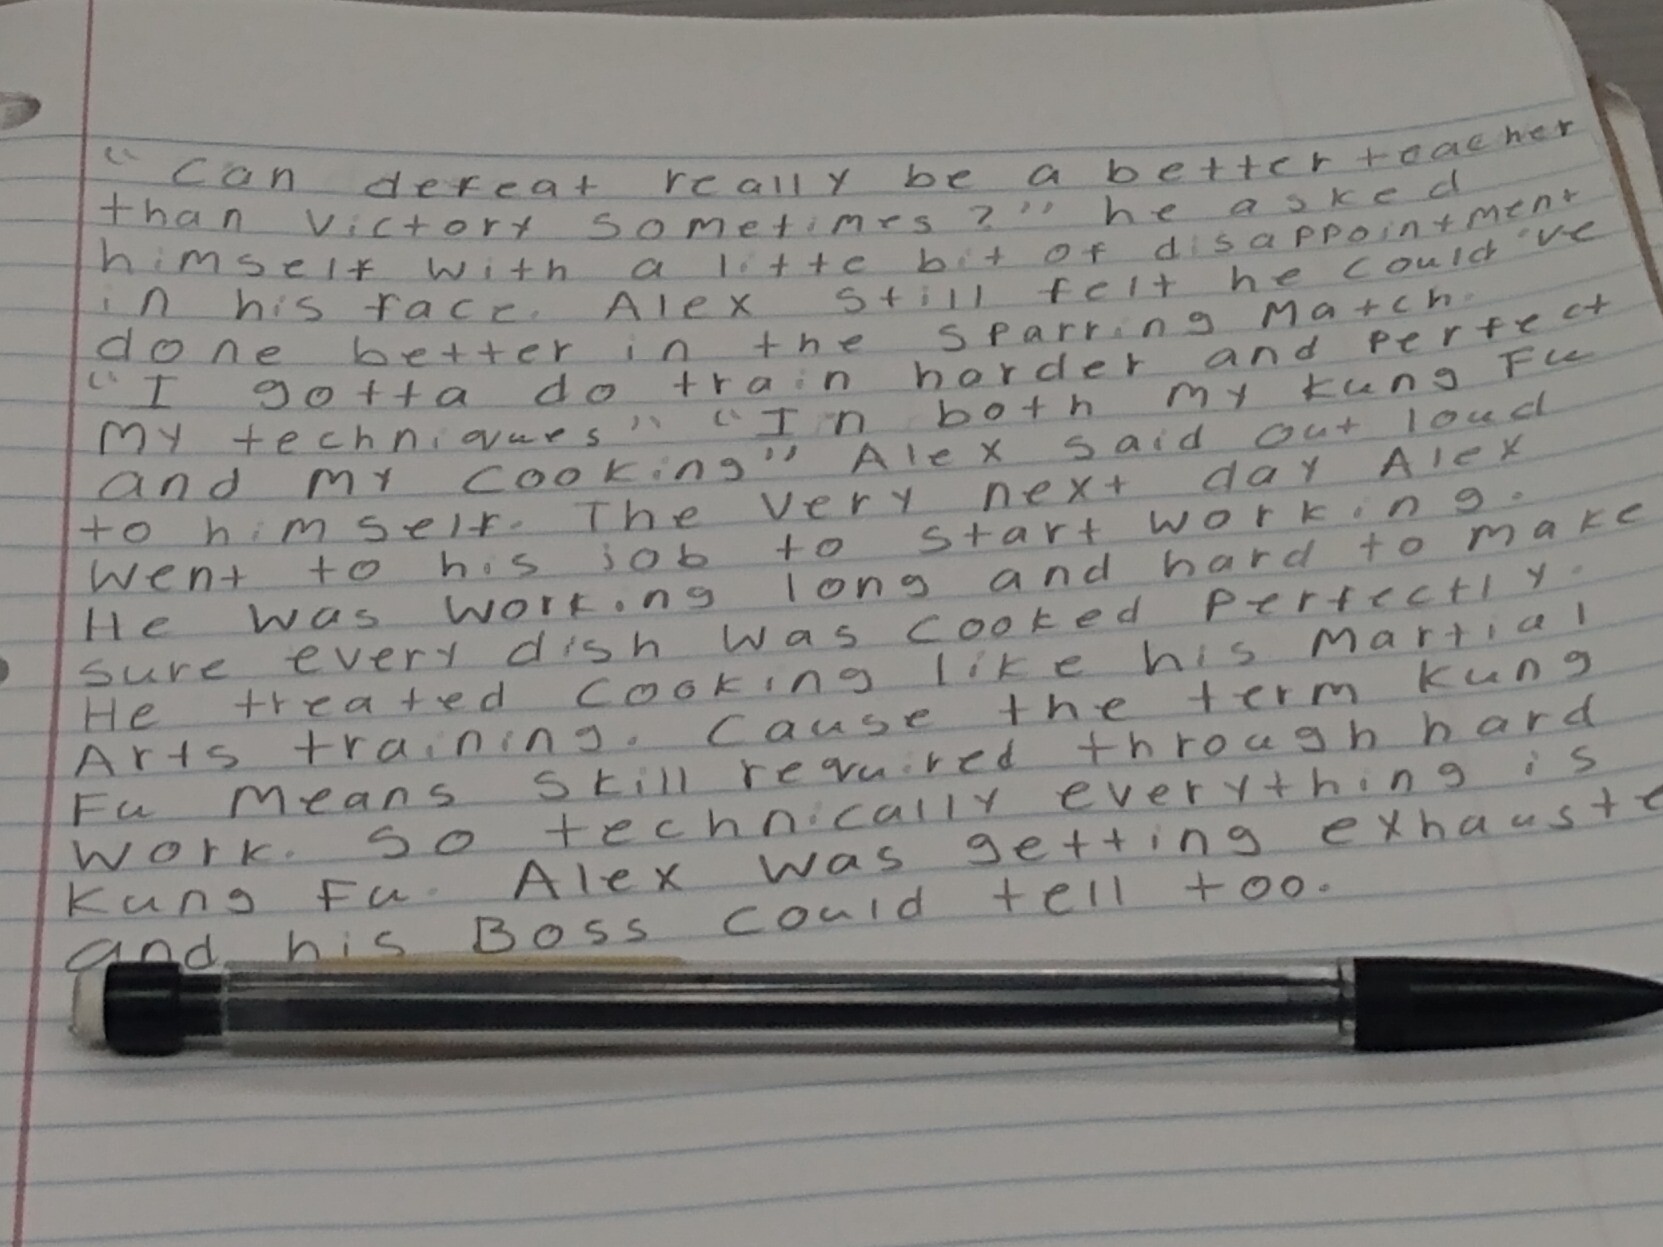 "Can defeat really be a better teacher
than victory sometimes?" he asked
himself with a litte bit of disappointment
in his face. Alex still felt he could've
done better in the sparring match.
"I gotta do train harder and perfect
my techniques" "In both my Kung Fu
and my cooking" Alex said out loud
to himself. The very next day Alex
went to his job to start working.
He was working long and hard to make
sure every dish was cooked perfectly.
He treated cooking like his Martial
Arts training. Cause the term Kung
Fu means skill required through hard
work. So technically everything is
Kung Fu. Alex was getting exhauste
and his Boss could tell too.